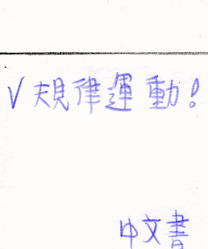 √規律運動!
中文書